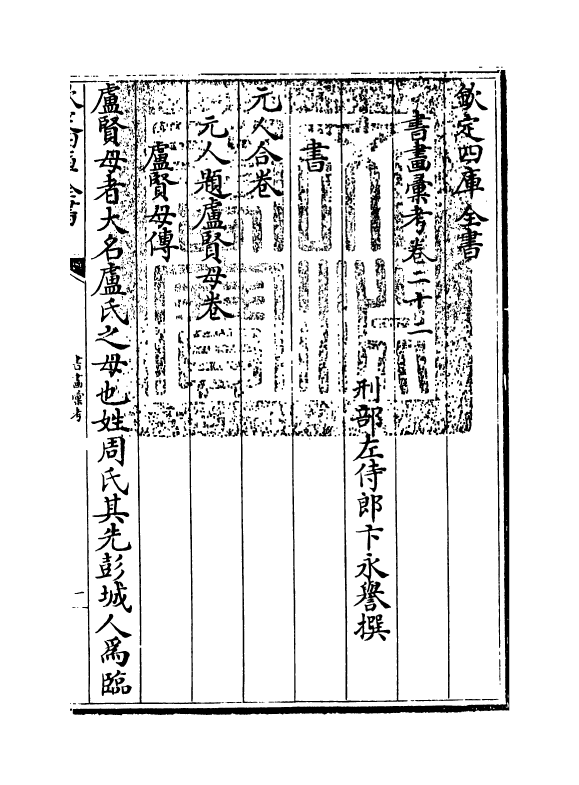 欽定四庫全書
書畫彙考卷二十二
刑部左侍郎卞永譽撰
書
元人合卷
元人題盧賢母卷
盧賢母傳
盧賢母者大名盧氏之母也姓周氏其先彭城人爲臨
書畫彙考
一